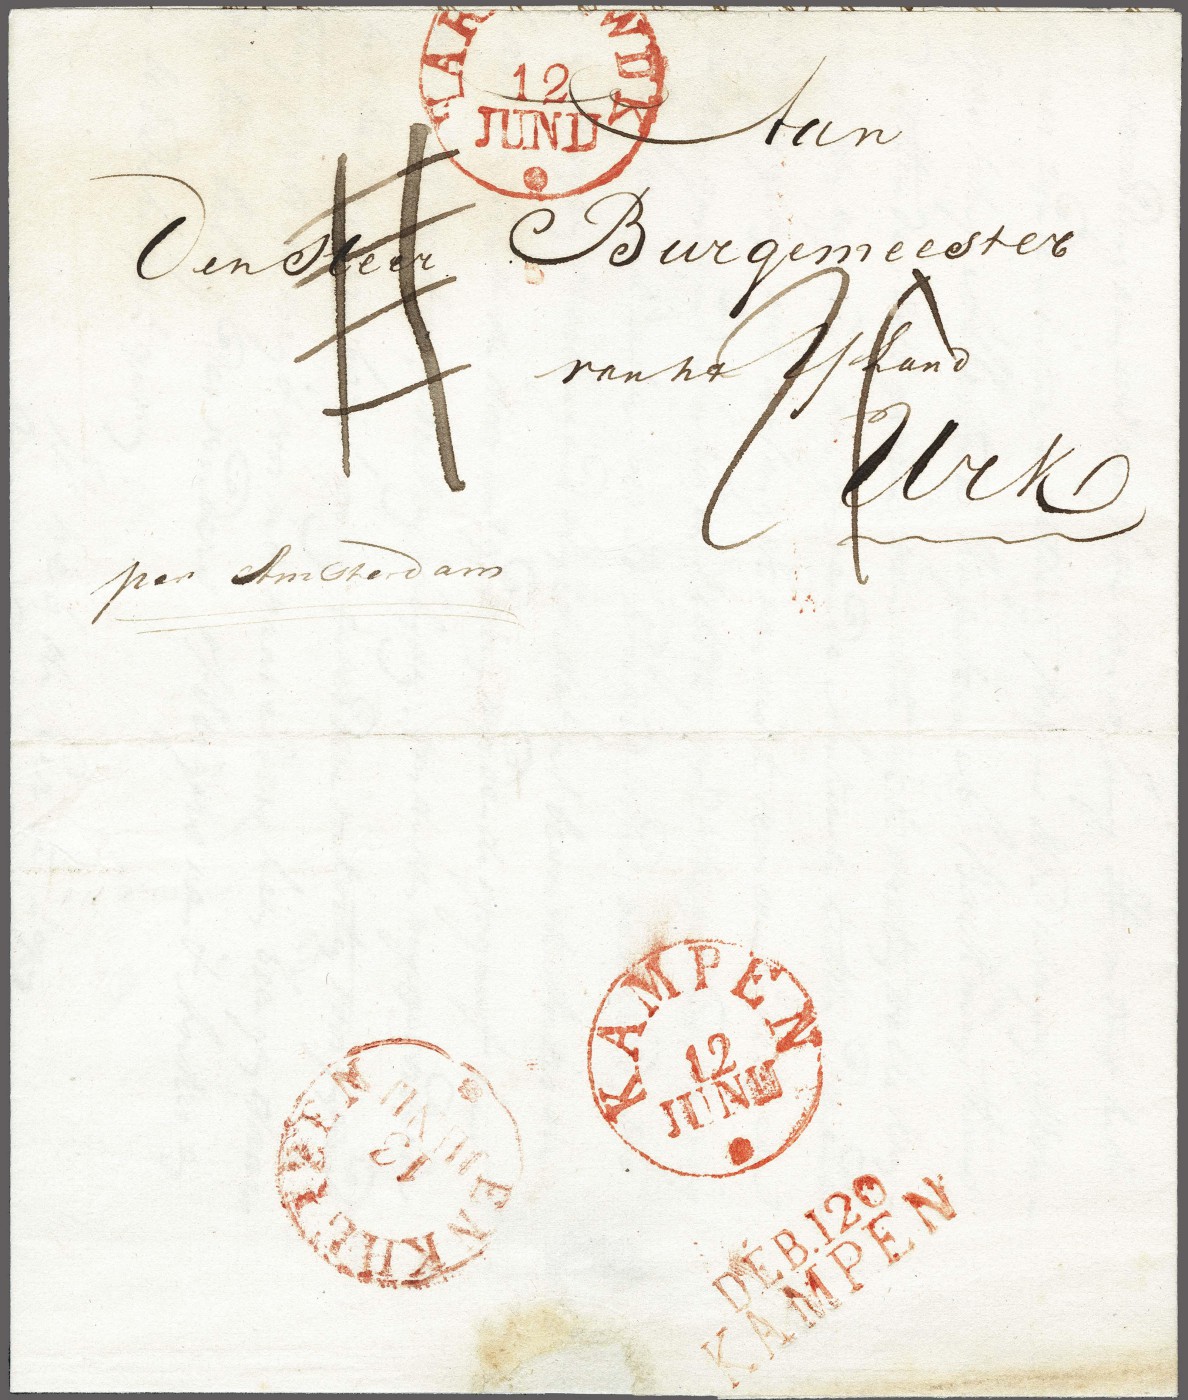 12
JUNIJ
Aan
Den Heer Burgemeester
van het Eyland
Urk
per Amsterdam
KAMPEN
12
JUNIJ
ENKHUIZEN
13
JUNIJ
DEB. 120
KAMPEN